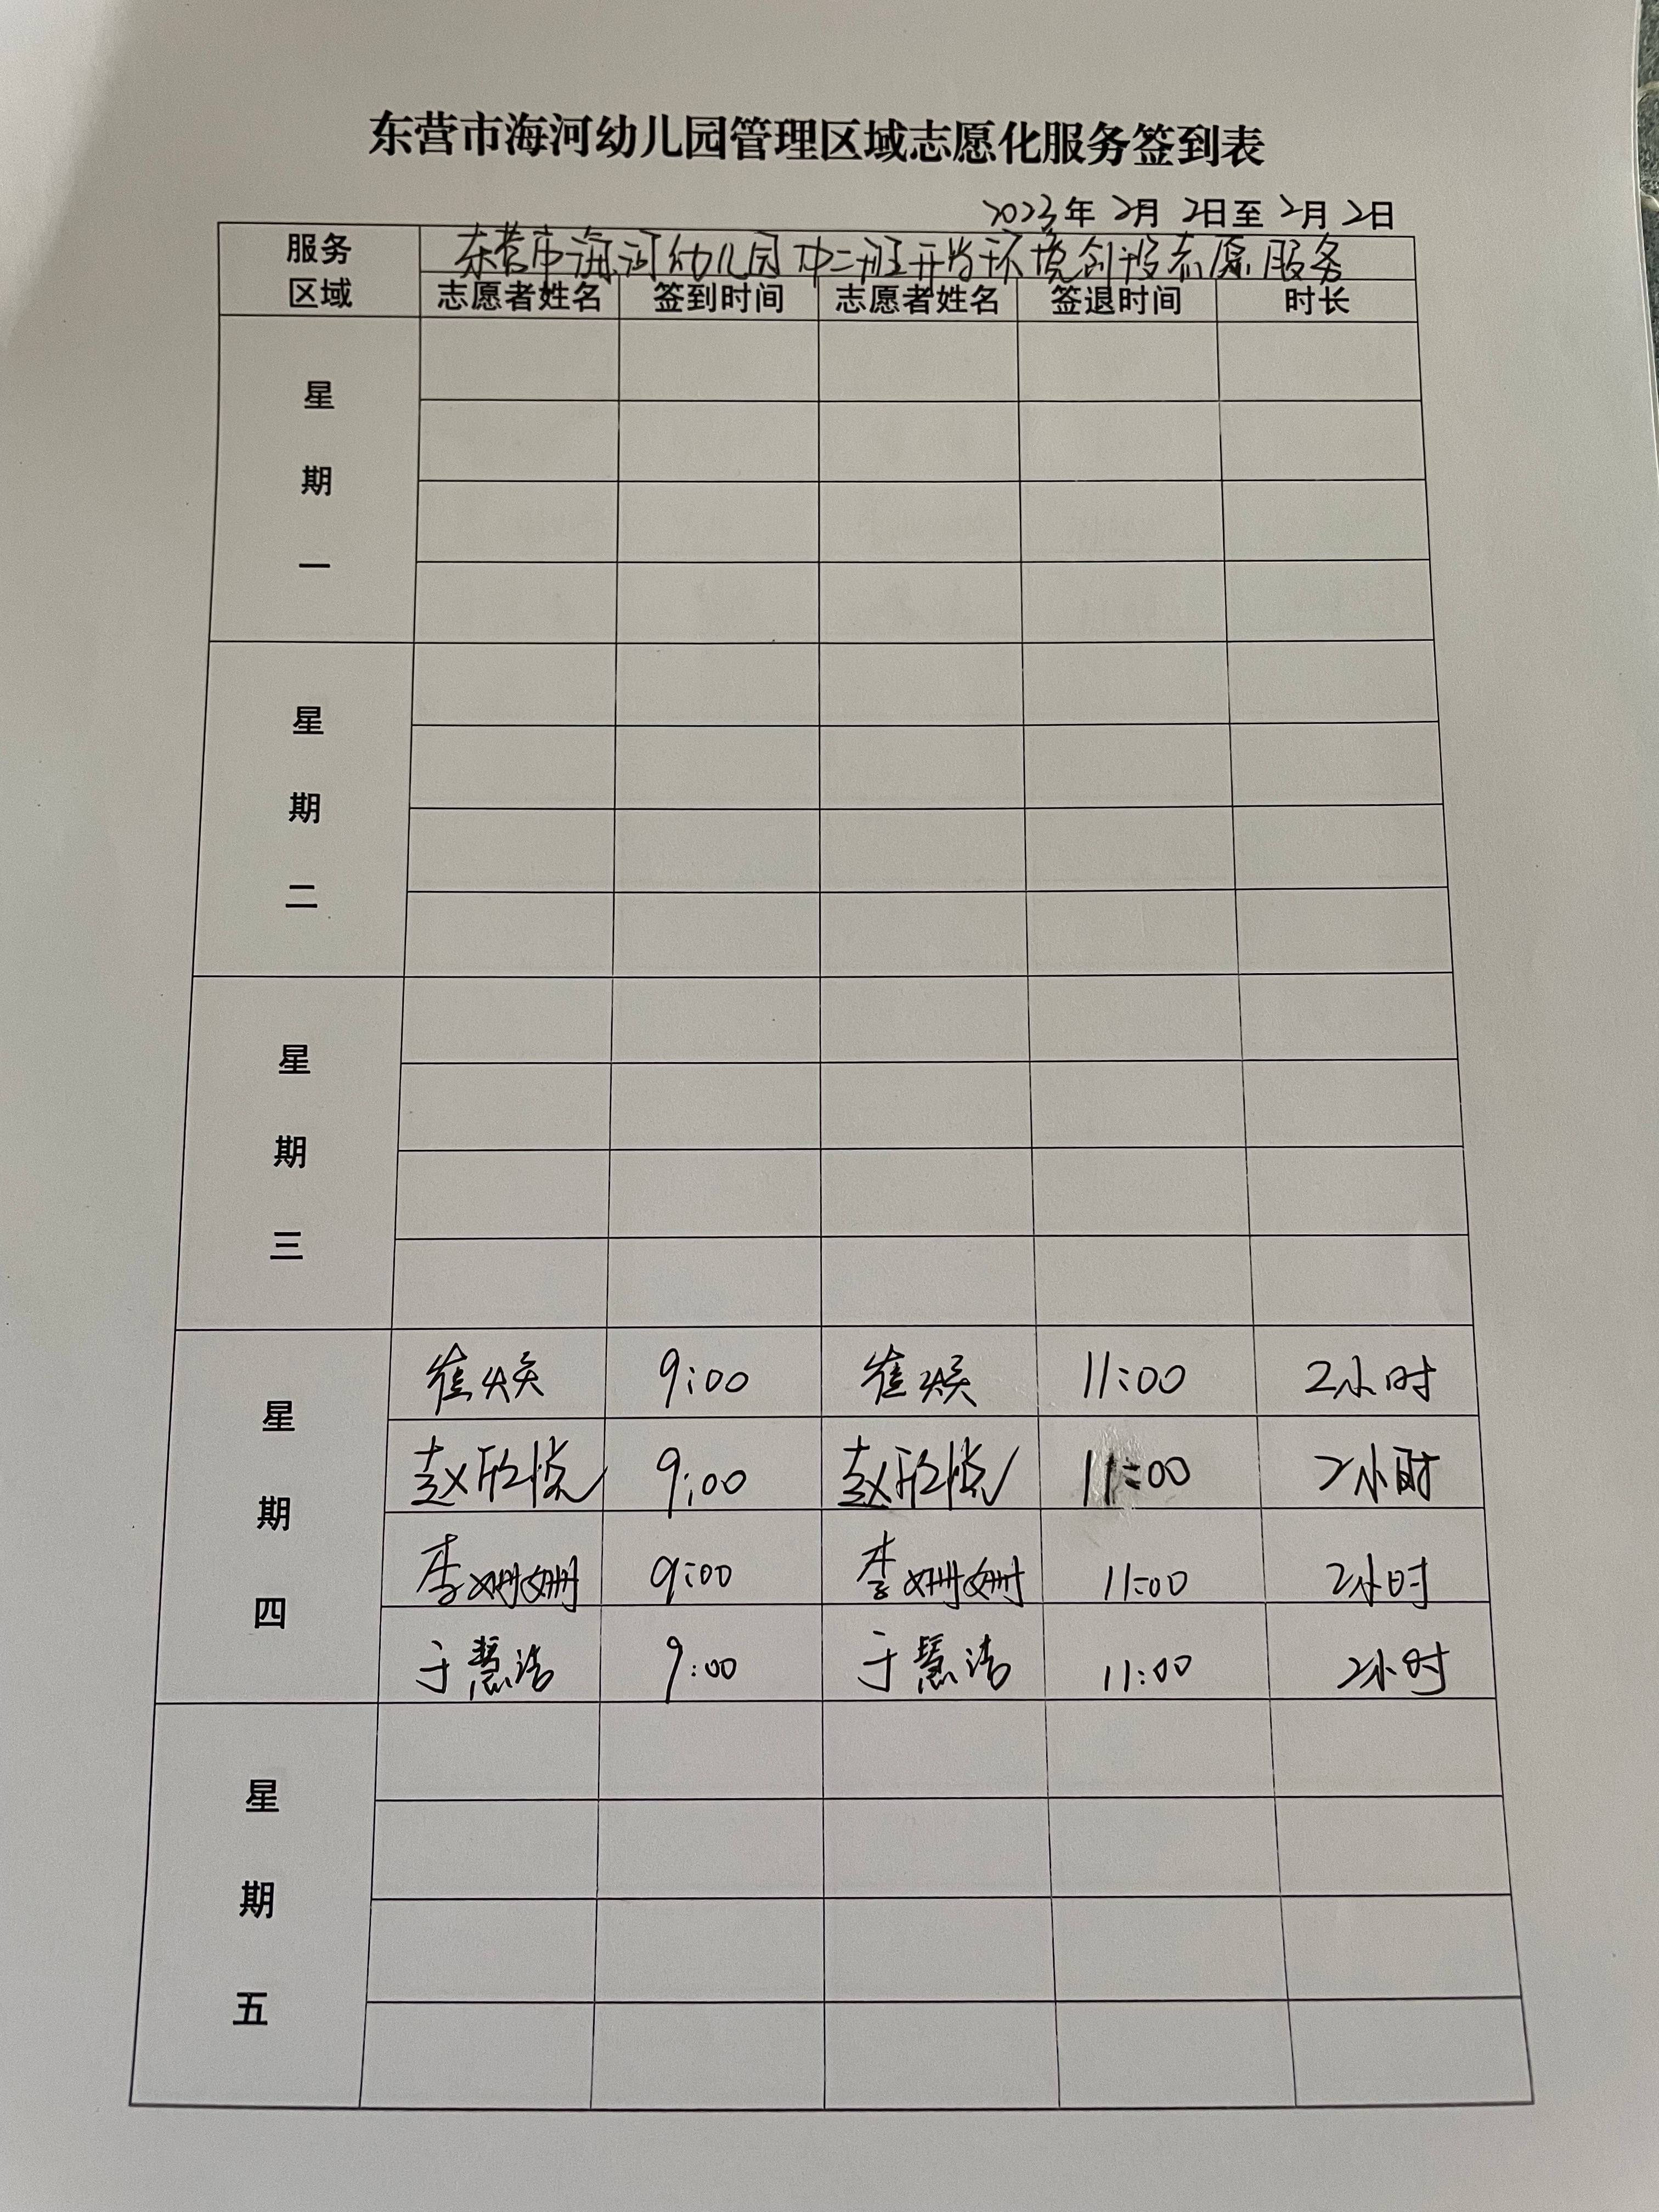 东营市海河幼儿园管理区域志愿化服务签到表
2023年 2月 2日至 2月 2日
服务区域 东营市海河幼儿园中二班开学环境创设志愿服务
志愿者姓名 签到时间 志愿者姓名 签退时间 时长
星期一
星期二
星期三
星期四
崔焕 9:00 崔焕 11:00 2小时
赵欣悦 9:00 赵欣悦 11:00 2小时
李姗姗 9:00 李姗姗 11:00 2小时
于慧洁 9:00 于慧洁 11:00 2小时
星期五